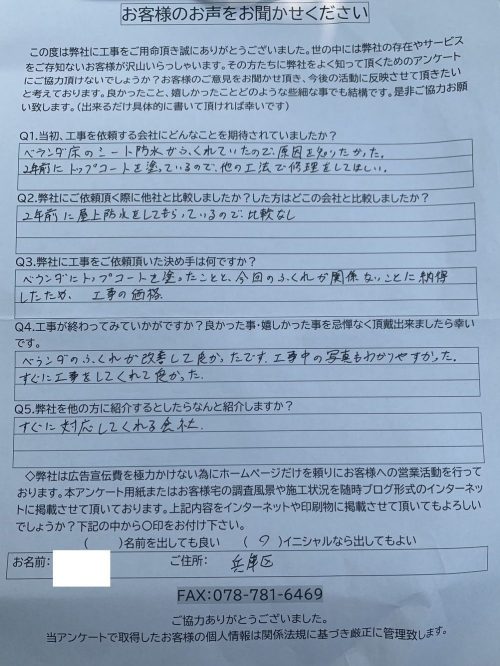 お客様のお声をお聞かせください
この度は弊社に工事をご用命頂き誠にありがとうございました。世の中には弊社の存在やサービス
をご存知ないお客様が沢山いらっしゃいます。その方たちに弊社をよく知って頂くためのアンケート
にご協力頂けないでしょうか？お客様のご意見をお聞かせ頂き、今後の活動に反映させて頂きたい
と考えております。良かったこと、嬉しかったことどのような些細な事でも結構です。是非ご協力お願
い致します。（出来るだけ具体的に書いて頂ければ幸いです）
Q1.当初、工事を依頼する会社にどんなことを期待されていましたか？
ベランダ床のシート防水がふくれていたので、原因を知りたかった。
2年前にトップコートを塗っているので、他の工法で修理をしてほしい。
Q2.弊社にご依頼頂く際に他社と比較しましたか？した方はどこの会社と比較しましたか？
2年前に屋上防水をしてもらっているので、比較なし
Q3.弊社に工事をご依頼頂いた決め手は何ですか？
ベランダにトップコートを塗ったことと、今回のふくれが関係ないことに納得
したため、 工事の価格.
Q4.工事が終わってみていかがですか？良かった事・嬉しかった事を忌憚なく頂戴出来ましたら幸い
です。
ベランダのふくれが改善して良かったです. 工事中の写真もわかりやすかった.
すぐに工事をしてくれて良かった.
Q5.弊社を他の方に紹介するとしたらなんと紹介しますか？
すぐに対応してくれる会社.
◇弊社は広告宣伝費を極力かけない為にホームページだけを頼りにお客様への営業活動を行って
おります。本アンケート用紙またはお客様宅の調査風景や施工状況を随時ブログ形式のインターネッ
トに掲載させて頂いております。上記内容をインターネットや印刷物に掲載させて頂いてもよろしい
でしょうか？下記の中から〇印をお付け下さい。
( )名前を出しても良い ( )イニシャルなら出してもよい
お名前: ご住所: 兵庫区
FAX:078-781-6469
ご協力ありがとうございました。
当アンケートで取得したお客様の個人情報は関係法規に基づき厳正に管理致します。